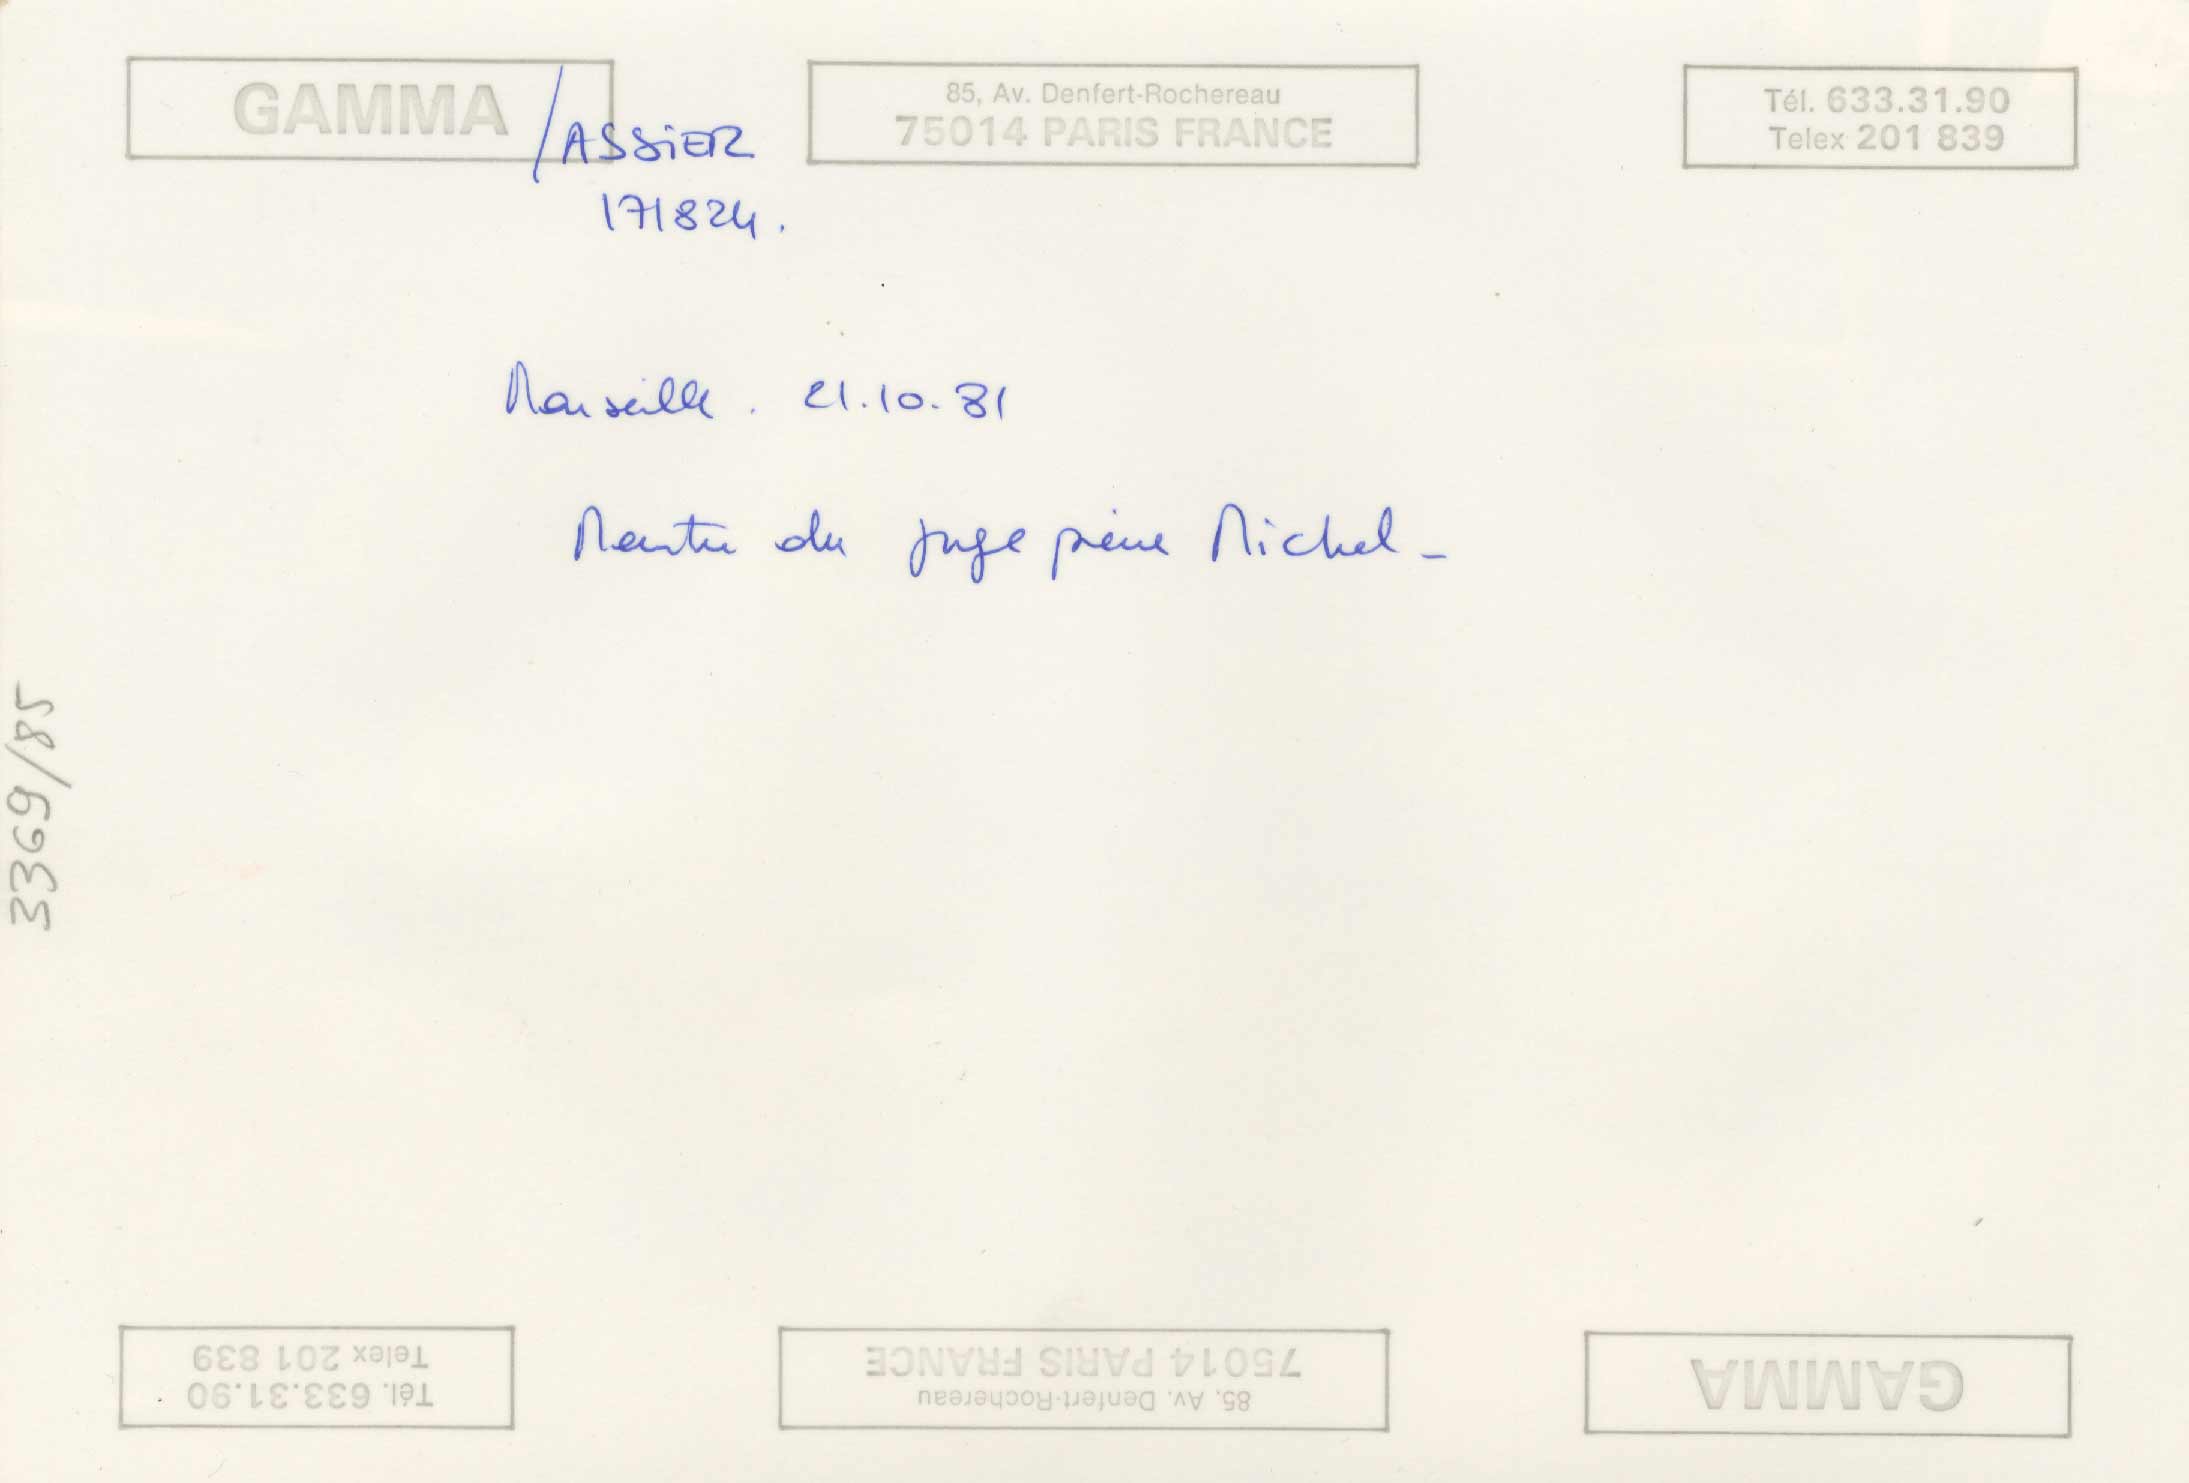 GAMMA /ASSIER
171824.
85, Av. Denfert-Rochereau
75014 PARIS FRANCE
Tél. 633.31.90
Telex 201 839
Marseille. 21.10.81
Meurtre du juge pierre Michel -
3369/85
Tél. 633.31.90
Telex 201 839
85, Av. Denfert-Rochereau
75014 PARIS FRANCE
GAMMA